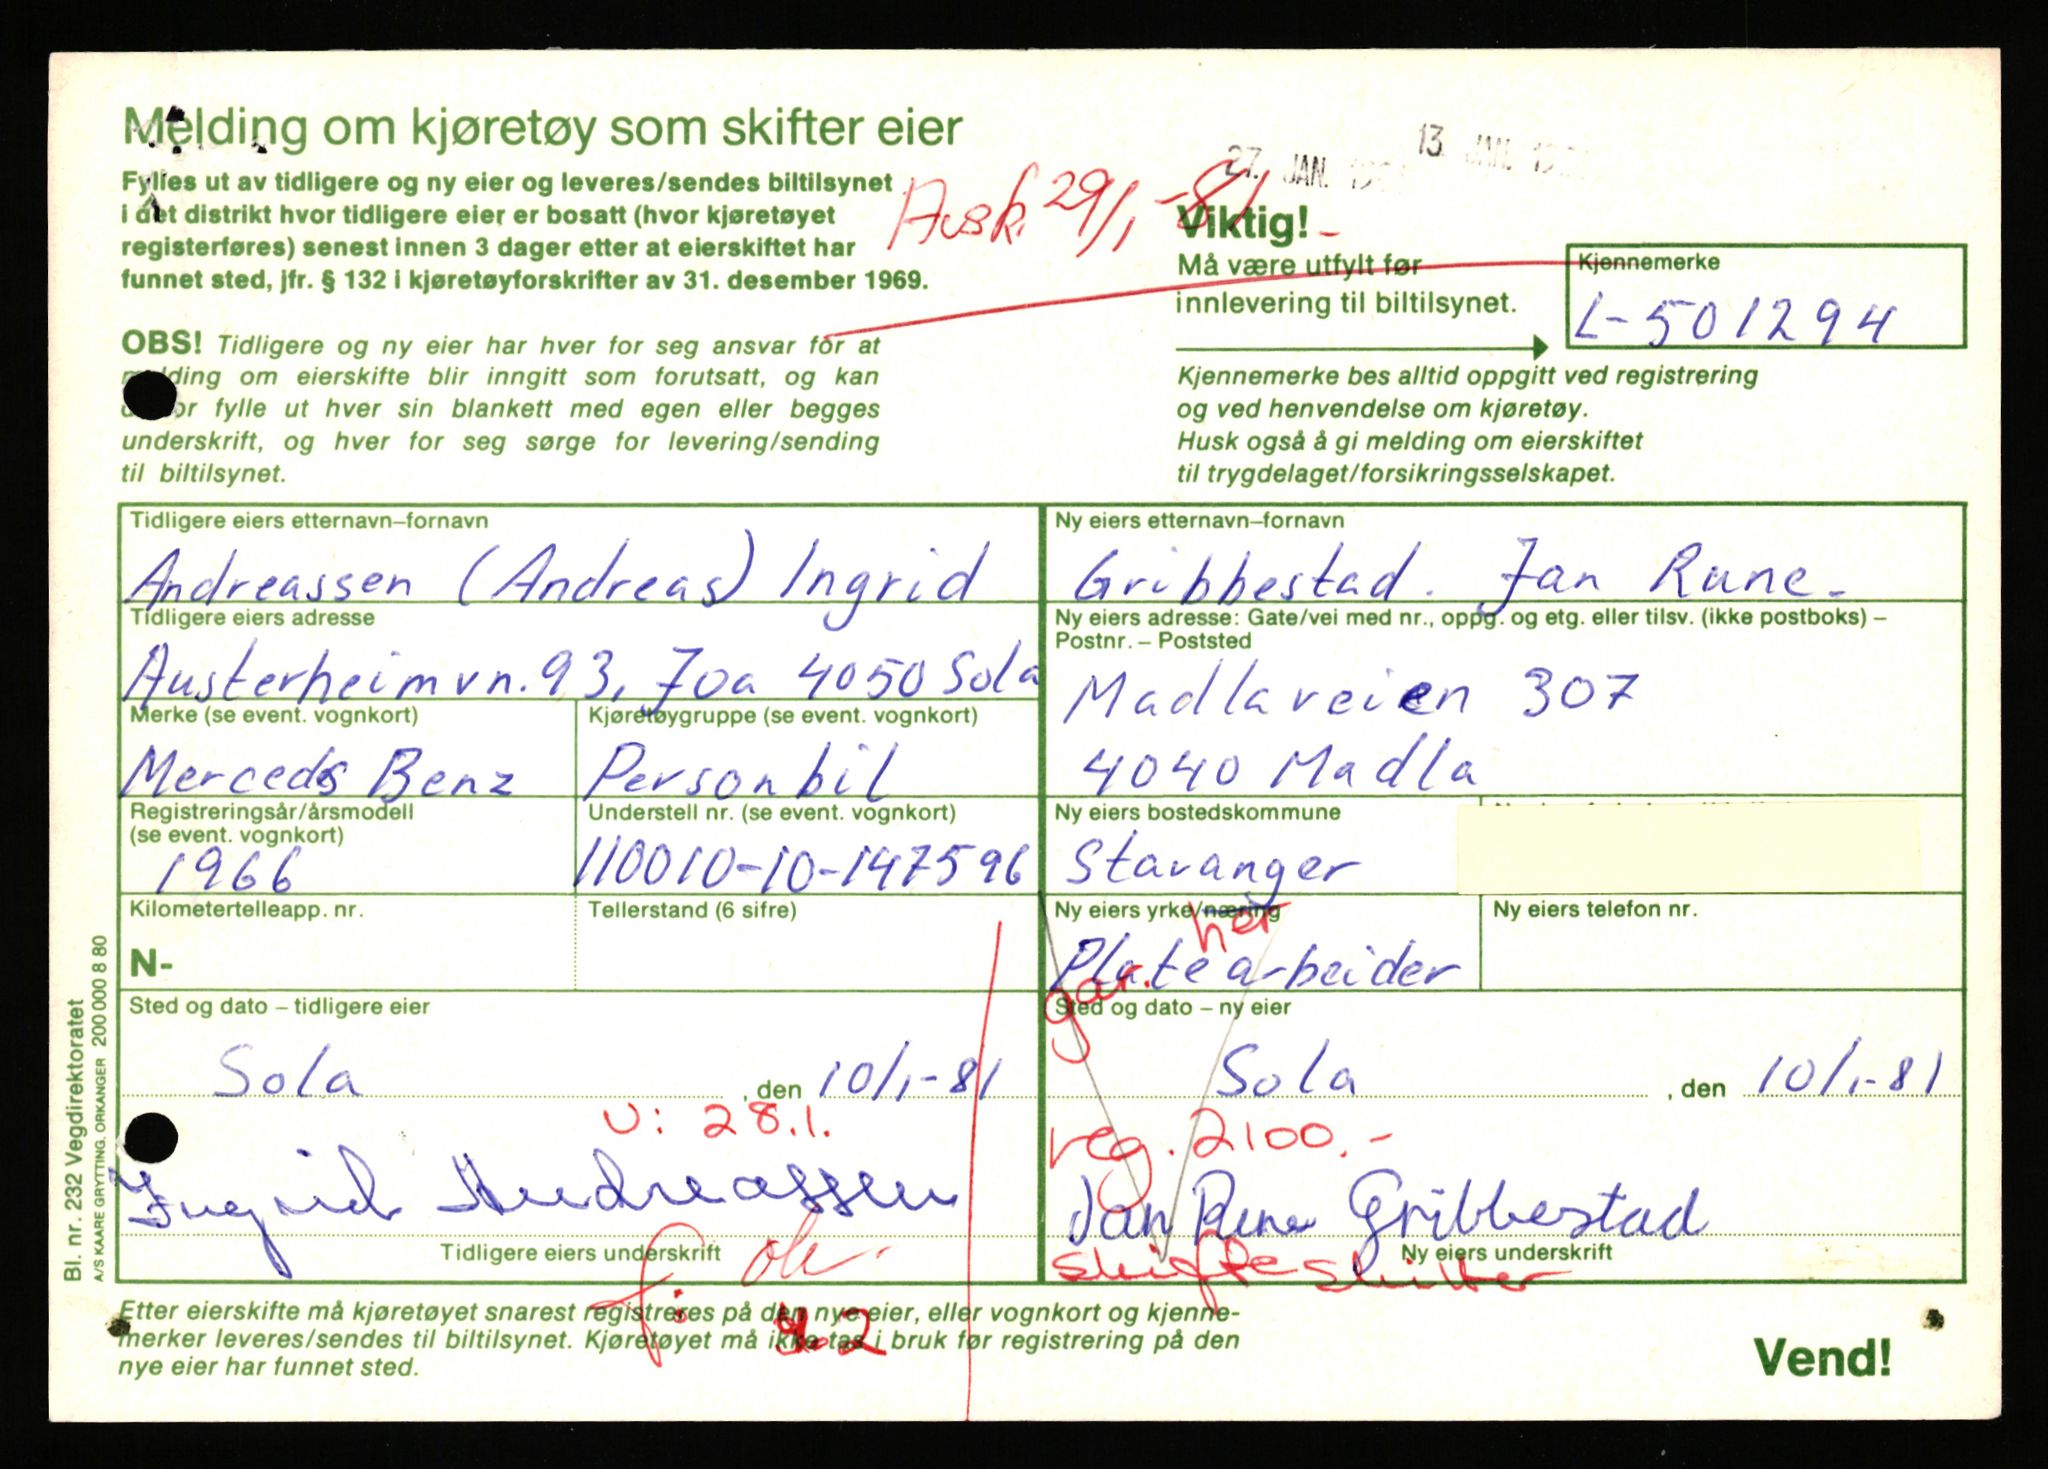 Melding om kjøretøy som skifter eier
27. JAN. 13. JAN.
Fylles ut av tidligere og ny eier og leveres/sendes biltilsynet
i det distrikt hvor tidligere eier er bosatt (hvor kjøretøyet
registerføres) senest innen 3 dager etter at eierskiftet har
funnet sted, jfr. § 132 i kjøretøyforskrifter av 31. desember 1969.
Avsk. 29/1-81
OBS! Tidligere og ny eier har hver for seg ansvar for at
melding om eierskifte blir inngitt som forutsatt, og kan
fylle ut hver sin blankett med egen eller begges
underskrift, og hver for seg sørge for levering/sending
til biltilsynet.
Viktig!
Må være utfylt før
innlevering til biltilsynet.
Kjennemerke
L-501294
Kjennemerke bes alltid oppgitt ved registrering
og ved henvendelse om kjøretøy.
Husk også å gi melding om eierskiftet
til trygdelaget/forsikringsselskapet.
Tidligere eiers etternavn–fornavn
Andreassen (Andreas) Ingrid
Tidligere eiers adresse
Austerheimvn. 93, Joa 4050 Sola
Merke (se event. vognkort)
Mercedes Benz
Kjøretøygruppe (se event. vognkort)
Personbil
Registreringsår/årsmodell
(se event. vognkort)
1966
Understell nr. (se event. vognkort)
110010-10-147596
Kilometertelleapp. nr.
N-
Tellerstand (6 sifre)
Sted og dato – tidligere eier
Sola , den 10/1-81
U: 28.1.
Ingrid Andreassen
Tidligere eiers underskrift
ok.
Ny eiers etternavn–fornavn
Gribbestad. Jan Rune-
Ny eiers adresse: Gate/vei med nr., oppg. og etg. eller tilsv. (ikke postboks) –
Postnr. – Poststed
Madlaveien 307
4040 Madla
Ny eiers bostedskommune
Stavanger
Ny eiers yrke/næring
her
Platearbeider
Ny eiers telefon nr.
gar.
Sted og dato – ny eier
Sola , den 10/1-81
reg. 2100.-
Jan Rune Gribbestad
Ny eiers underskrift
skifte skilter
Etter eierskifte må kjøretøyet snarest registreres på den nye eier, eller vognkort og kjenne-
merker leveres/sendes til biltilsynet. Kjøretøyet må ikke tas i bruk før registrering på den
nye eier har funnet sted.
Vend!
Bl. nr. 232 Vegdirektoratet
A/S KAARE GRYTTING, ORKANGER 200 000 8 80